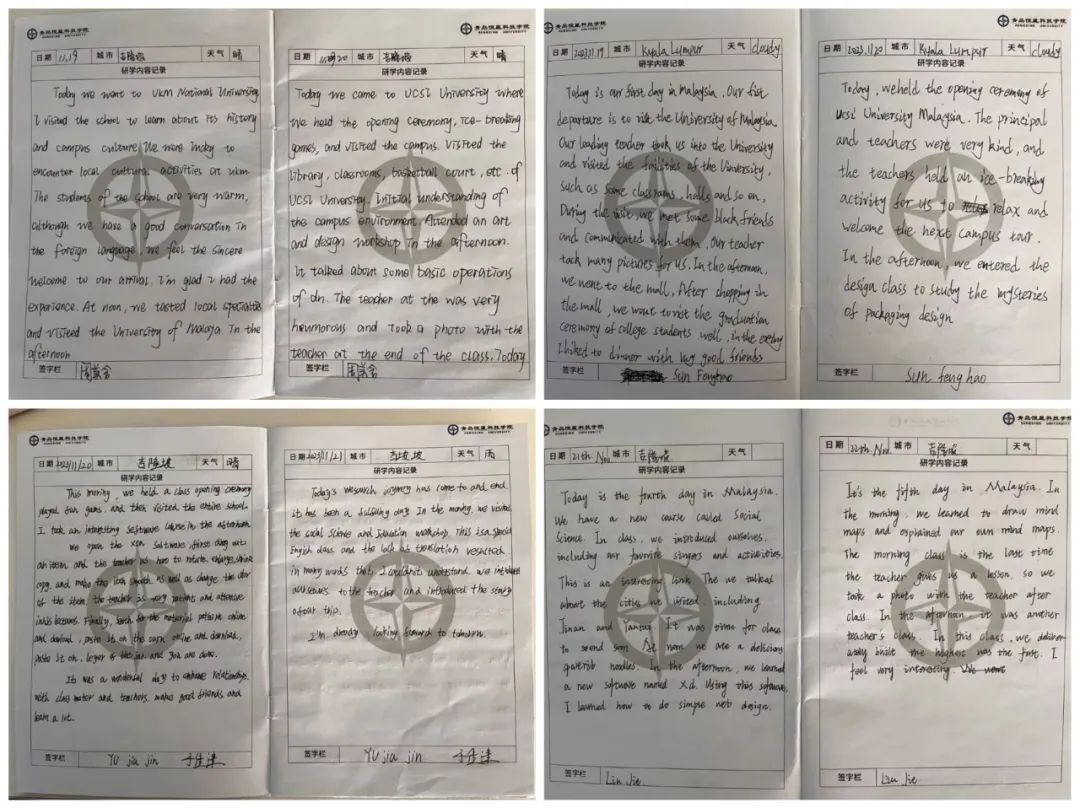 青岛恒星科技学院
日期 11.19 城市 吉隆坡 天气 晴
研学内容记录
Today we went to UKM National University
I visited the school to learn about its history
and campus culture. We were lucky to
encounter local cultural activities at ukm
The students of the school are very warm,
although we have a good conversation in
the foreign language, we feel the sincere
welcome to our arrival. I'm glad I had the
experience. At noon, we tasted local specialties
and visited the University of Malaya in the
afternoon
签字栏
青岛恒星科技学院
HENGXING UNIVERSITY
日期 城市 吉隆坡 天气 晴
研学内容记录
Today we came to UCSI University where
we held the opening ceremony, ice-breaking
games, and visited the campus. Visited the
library, classrooms, basketball court, etc. of
UCSI University. Initial understanding of
the campus environment. Attended an art
and design workshop in the afternoon.
It talked about some basic operations
of dn. The teacher at the was very
houmorous and took a photo with the
teacher at the end of the class. Today
签字栏
青岛恒星科技学院
HENGXING UNIVERSITY
日期 2023.11.19 城市 Kuala Lumpur 天气 cloudy
研学内容记录
Today is our first day in Malaysia. Our fist
departure is to visit the University of Malaysia.
Our leading teacher took us into the University
and visited the facilities of the University,
such as some classrooms, halls and so on,
During the visit, we met some black friends
and communicated with them. Our teacher
took many pictures for us. In the afternoon,
we went to the mall, After shopping in
the mall, we want to visit the graduation
ceremony of college students well, in the evening
I hiked to dinner with my good friends
签字栏 Sun Fenghao
青岛恒星科技学院
HENGXING UNIVERSITY
日期 2023.11.20 城市 Kuala Lumpur 天气 cloudy
研学内容记录
Today, we held the opening ceremony of
Ucsi University Malaysia. The principal
and teachers were very kind, and
the teachers held an ice-breaking
activity for us to relax and
welcome the next campus tour.
In the afternoon, we entered the
design class to study the mysteries
of packaging design
签字栏 Sun feng hao
青岛恒星科技学院
HENGXING UNIVERSITY
日期 2023/11/20 城市 吉隆坡 天气 晴
研学内容记录
This moring, we held a class opening ceremony
played fun games, and then visited the entire school.
I took an interesting software course in the afternoon
We open the xsn software, first drag out
an item, and the teacher how to rotate, enlarge, shrink
copy, and make the item smooth. As well as change the color
of the item the teacher is very patient and attentive
in his lectures. Finally, search for the material pattern online
and download, paste it on the carn online and download,
paste it on, layer and you are done.
It was a wonderful day to enhance relationships
with class mater and teachers, makes good friends, and
learn a lot.
签字栏 YU jia jin 于佳津
青岛恒星科技学院
HENGXING UNIVERSITY
日期 2023/11/21 城市 天气 雨
研学内容记录
Today's research journey has come to and end.
It has been a fulfilling day. In the morning, we visited
the social Science and Education workshop. This is a special
English class, and the lack of translation resulted
in many words that I couldn't understand. We introduced
ourselves to the teacher and introduced the story
of our trip.
I'm already looking forward to tomorrow.
签字栏 YU jia jin 于佳津
青岛恒星科技学院
HENGXING UNIVERSITY
日期 21th. Nov. 城市 吉隆坡 天气
研学内容记录
Today is the fourth day in Malaysia.
We have a new course called Social
Science. In class, we introduced ourselves,
including our favorite singers and activities.
This is an interesting link. The we talked
about the cities we visited, including
Jinan and Yantai. It was time for class
to soond soon. At noon we ate a delicious
noodles. In the afternoon, we learned
a new software named Xd. Using this software,
I learned how to do simple web design.
签字栏 Lin Jie
青岛恒星科技学院
HENGXING UNIVERSITY
日期 22th. Nov. 城市 吉隆坡 天气
研学内容记录
It's the fifth day in Malaysia. In
the morning, we learned to draw mind
maps and explained our own mind maps.
The morning class is the last time
the teacher gives us a lesson, so we
took a photo with the teacher after
class. In the afternoon it was another
teacher's class. In this class, we deliber-
ately built the highest was the first. I
feel very interesting.
签字栏 Lin Jie